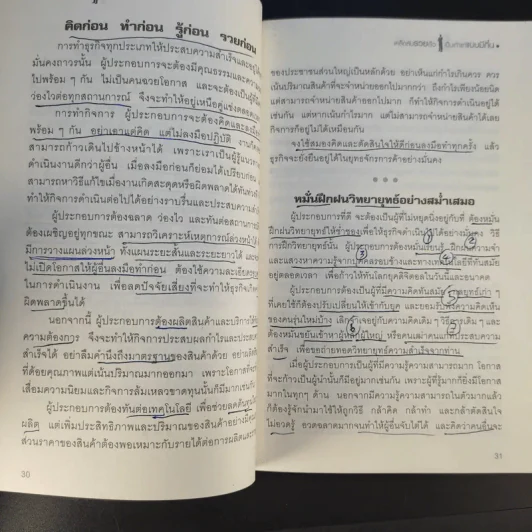 คิดก่อน ทำก่อน รู้ก่อน รวยก่อน
การทำธุรกิจทุกประเภทให้ประสบความสำเร็จและอยู่ได้
มั่นคงถาวรนั้น ผู้ประกอบการจะต้องมีคุณธรรมและความ
ไปพร้อม ๆ กัน ไม่เป็นคนฉวยโอกาส และจะต้องเป็นผู้
ว่องไวต่อทุกสถานการณ์ จึงจะทำให้อยู่เหนือคู่แข่งตลอด
การทำกิจการ ผู้ประกอบการจะต้องคิดและลงมือ
พร้อม ๆ กัน อย่าเอาแต่คิด แต่ไม่ลงมือปฏิบัติ งาน
สามารถก้าวเดินไปข้างหน้าได้ เพราะเราเป็นผู้รู้แนวทาง
ดำเนินงานดีกว่าผู้อื่น เมื่อลงมือก่อนก็ย่อมได้เปรียบก่อน
สามารถหาวิธีแก้ไขเมื่อเกิดสะดุดหรือผิดพลาดได้ทันท่วงที
ทำให้กิจการดำเนินต่อไปได้อย่างราบรื่นและประสบความ
ผู้ประกอบการต้องฉลาด ว่องไว และทันต่อสถานการณ์
ต้องเผชิญอยู่ทุกขณะ สามารถวิเคราะห์เหตุการณ์ล่วงหน้าได้
มีการวางแผนล่วงหน้า ทั้งแผนระยะสั้นและระยะยาวได้
ไม่เปิดโอกาสให้ผู้อื่นลงมือทำก่อน ต้องใช้ความละเอียดรอบ
ในการดำเนินงาน เพื่อลดปัจจัยเสี่ยงที่จะทำให้ธุรกิจเกิด
ผิดพลาดขึ้นได้
นอกจากนี้ ผู้ประกอบการต้องผลิตสินค้าและบริการให้
ความต้องการ จึงจะทำให้กิจการประสบผลกำไรและประสบ
สำเร็จได้ อย่าลืมคำนึงถึงมาตรฐานของสินค้าด้วย อย่าผลิต
ที่ด้อยคุณภาพแต่เน้นปริมาณมากออกมา เพราะโอกาสที่จะ
เสื่อมความนิยมและกิจการล้มเหลวขาดทุนนั้นก็มีมากเช่นกัน
ผู้ประกอบการต้องทันต่อเทคโนโลยี เพื่อช่วยลดต้นทุน
ผลิต แต่เพิ่มประสิทธิภาพและปริมาณของสินค้าอย่าง
ส่วนราคาของสินค้าต้องพอเหมาะกับรายได้ต่อการผลิตและ
30
ของประชาชนส่วนใหญ่เป็นหลักด้วย อย่าเห็นแก่กำไรเกินควร ควร
เน้นปริมาณสินค้าที่จะจำหน่ายออกไปมากกว่า ถึงกำไรเพียงน้อยนิด
แต่สามารถจำหน่ายสินค้าออกไปมาก ก็ทำให้กิจการดำเนินอยู่ได้
เช่นกัน แต่หากเน้นกำไรมาก แต่ไม่สามารถจำหน่ายสินค้าได้เลย
กิจการก็อยู่ไม่ได้เหมือนกัน
จงใช้สมองคิดและตัดสินใจให้ดีก่อนลงมือทำทุกครั้ง แล้ว
ธุรกิจจะยั่งยืนอยู่ได้ในยุทธจักรการค้าอย่างมั่นคง
หมั่นฝึกฝนวิทยายุทธ์อย่างสม่ำเสมอ
ผู้ประกอบการที่ดี จะต้องเป็นผู้ที่ไม่หยุดนิ่งอยู่กับที่ ต้องหมั่น
ฝึกฝนวิทยายุทธ์ให้ชำชองเพื่อให้ธุรกิจดำเนินไปได้อย่างมั่นคง วิธี
การฝึกวิทยายุทธ์นั้น ผู้ประกอบการต้องหมั่นเรียนรู้ ฝึกฝนความจำ
และแสวงหาความรู้จากสื่อรอบข้างและทางเทคโนโลยีที่ทันสมัย
อยู่ตลอดเวลา เพื่อก้าวให้ทันโลกยุคดิจิตอลในวันนี้และอนาคต
ผู้ประกอบการต้องเป็นผู้ที่มีความคิดทันสมัย กลยุทธ์เก่า ๆ
ที่เคยใช้ก็ต้องปรับเปลี่ยนให้เข้ากับยุค และยอมรับฟังความคิดเห็น
ของคนรุ่นใหม่บ้าง เลิกจำเจอยู่กับความคิดเดิม ๆ วิธีการเดิม ๆ และ
ต้องหมั่นขยันเข้าหาผู้หลักผู้ใหญ่ หรือคนเก่าคนแก่ที่ประสบความ
สำเร็จ เพื่อขอถ่ายทอดวิทยายุทธ์ความสำเร็จจากท่าน
เมื่อผู้ประกอบการเป็นผู้ที่มีความรู้ความสามารถมาก โอกาส
ที่จะก้าวเป็นผู้นำนั้นก็มีอยู่มากเช่นกัน เพราะผู้ที่รู้มากก็ยิ่งมีโอกาส
มากในทุกๆ ด้าน นอกจากมีความรู้ความสามารถในตัวมากแล้ว
ก็ต้องรู้จักนำมาใช้ให้ถูกวิธี กล้าคิด กล้าทำ และกล้าตัดสินใจ
ไม่อวดรู้ อวดฉลาดมากจนทำให้ผู้อื่นจับไต๋ได้ และคิดว่าคนอื่นจะ
31